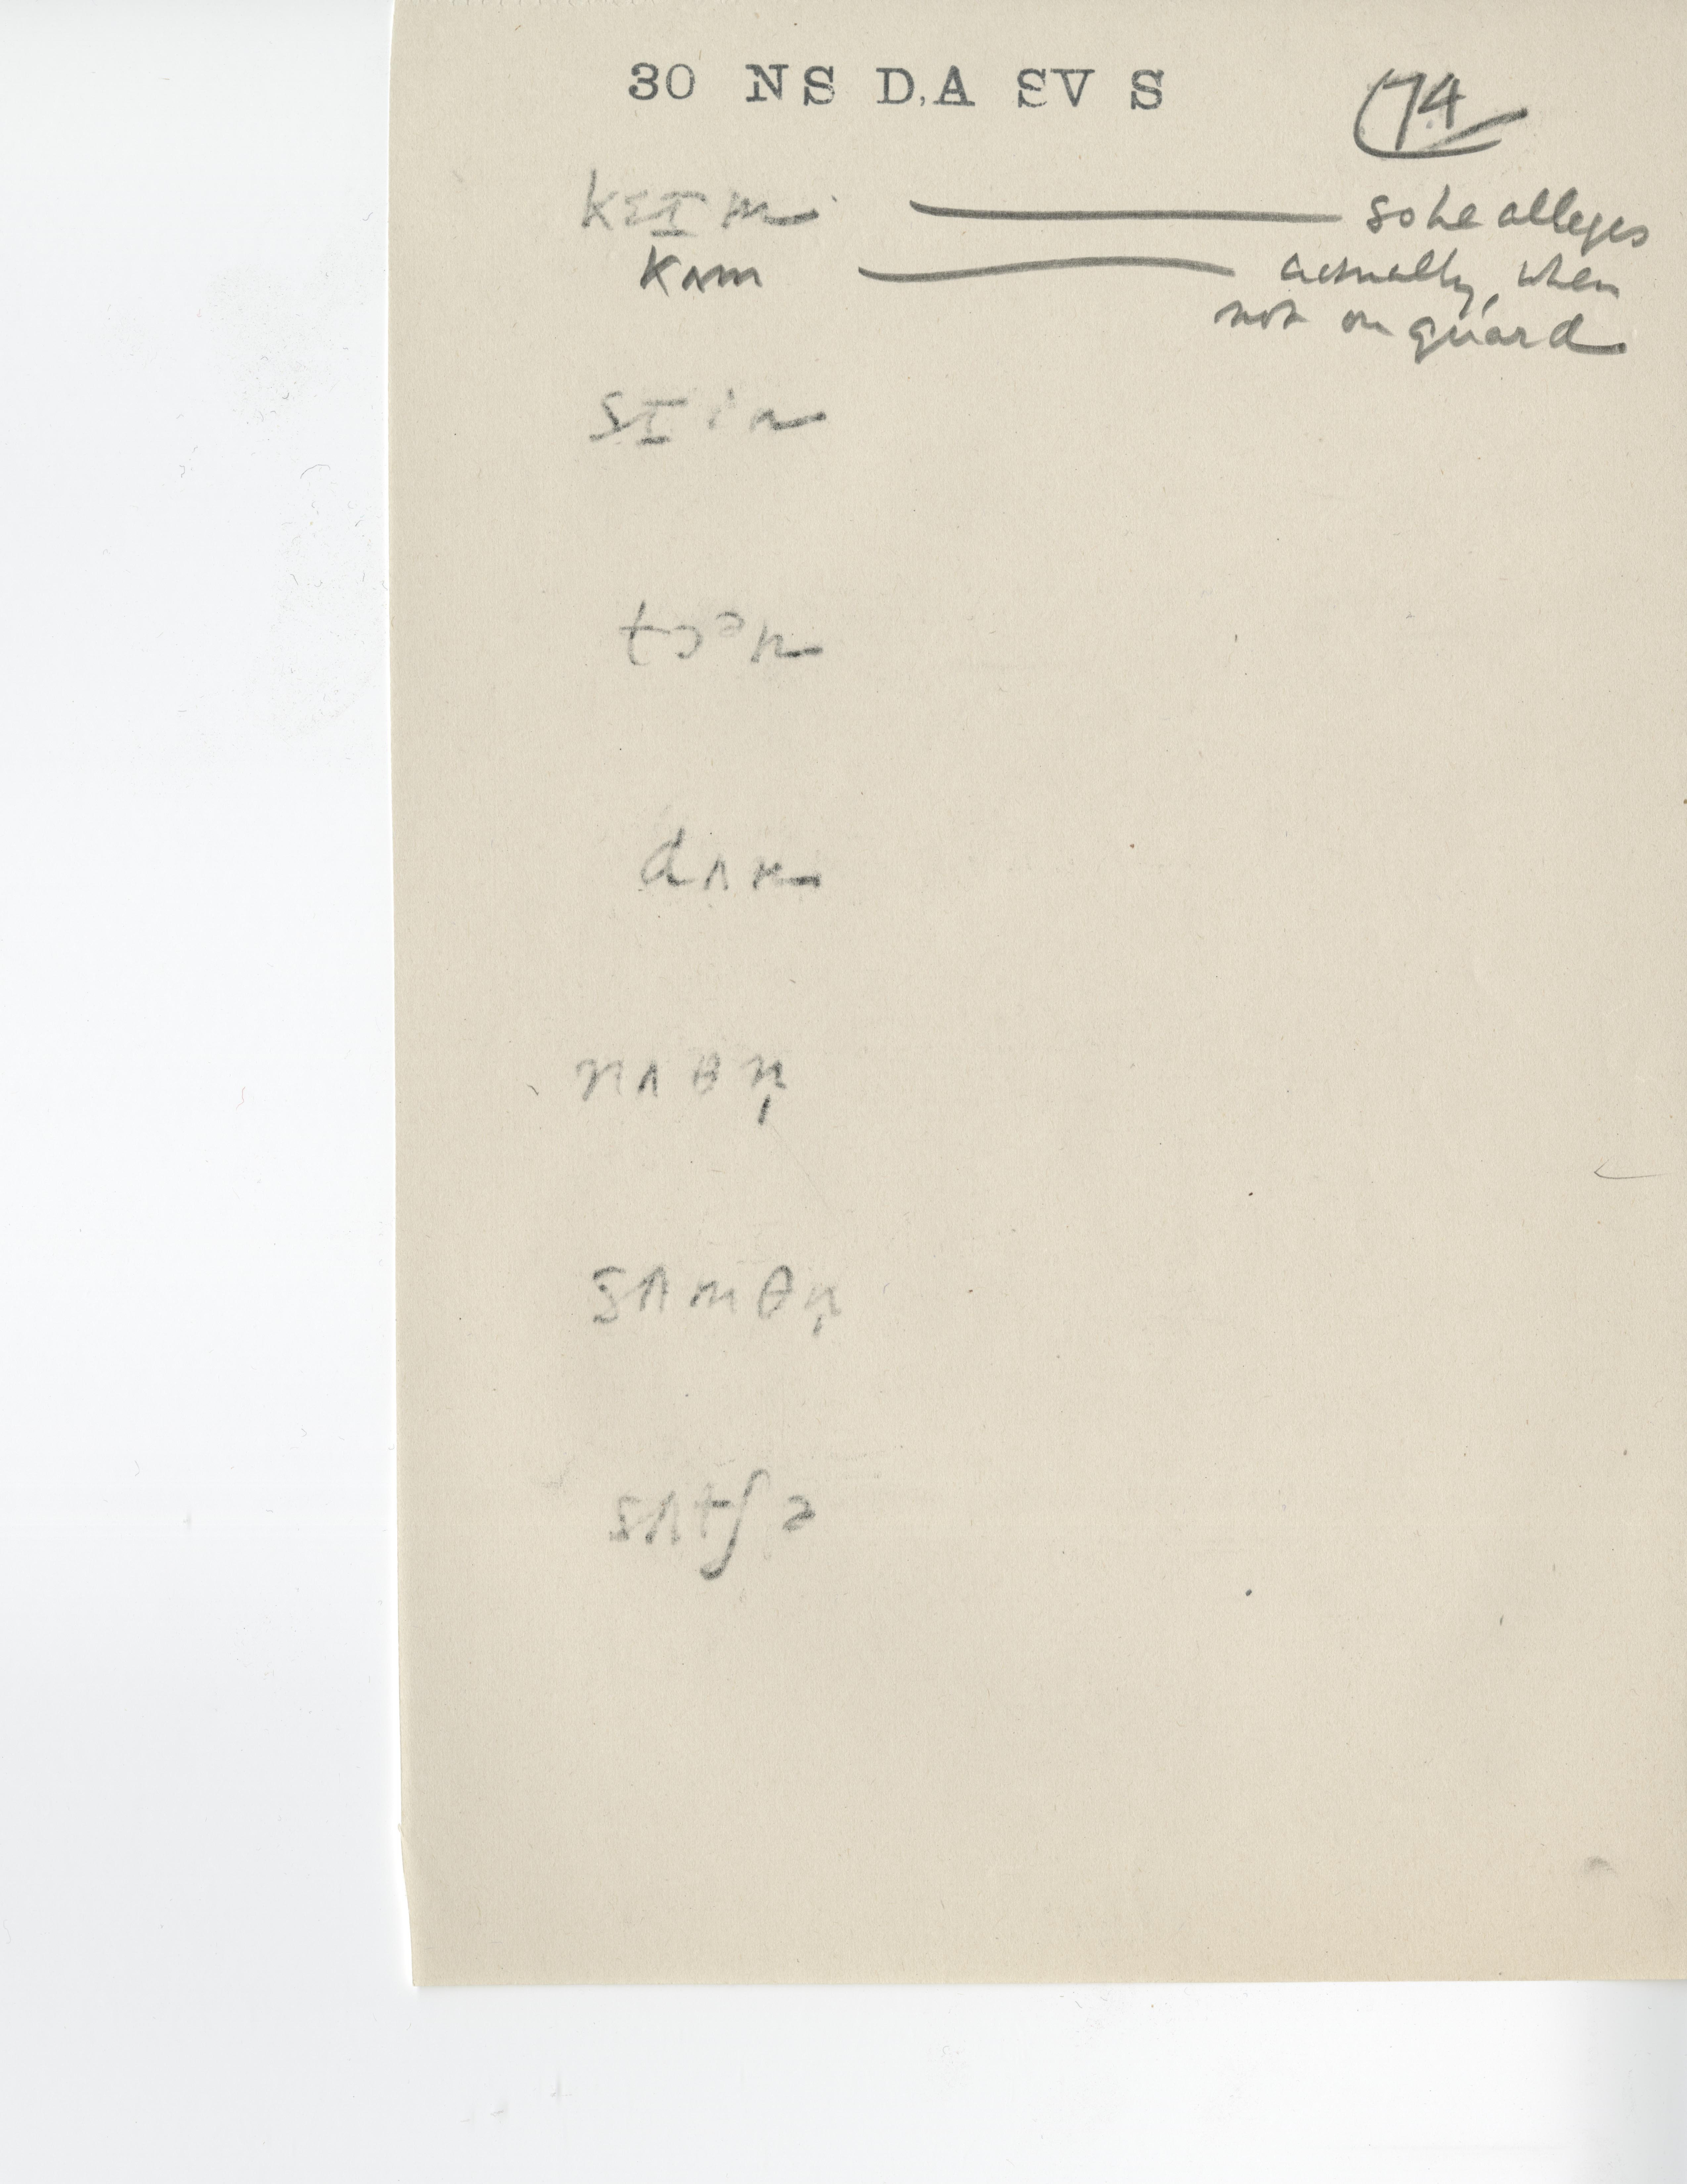 30 NS D.A SV S
74
kɛɪm — so he alleges
kʌm — actually, when
not on guard
sɪin
tɔᵊn
dʌn
nʌθn̩
sʌmθn̩
sʌtʃə